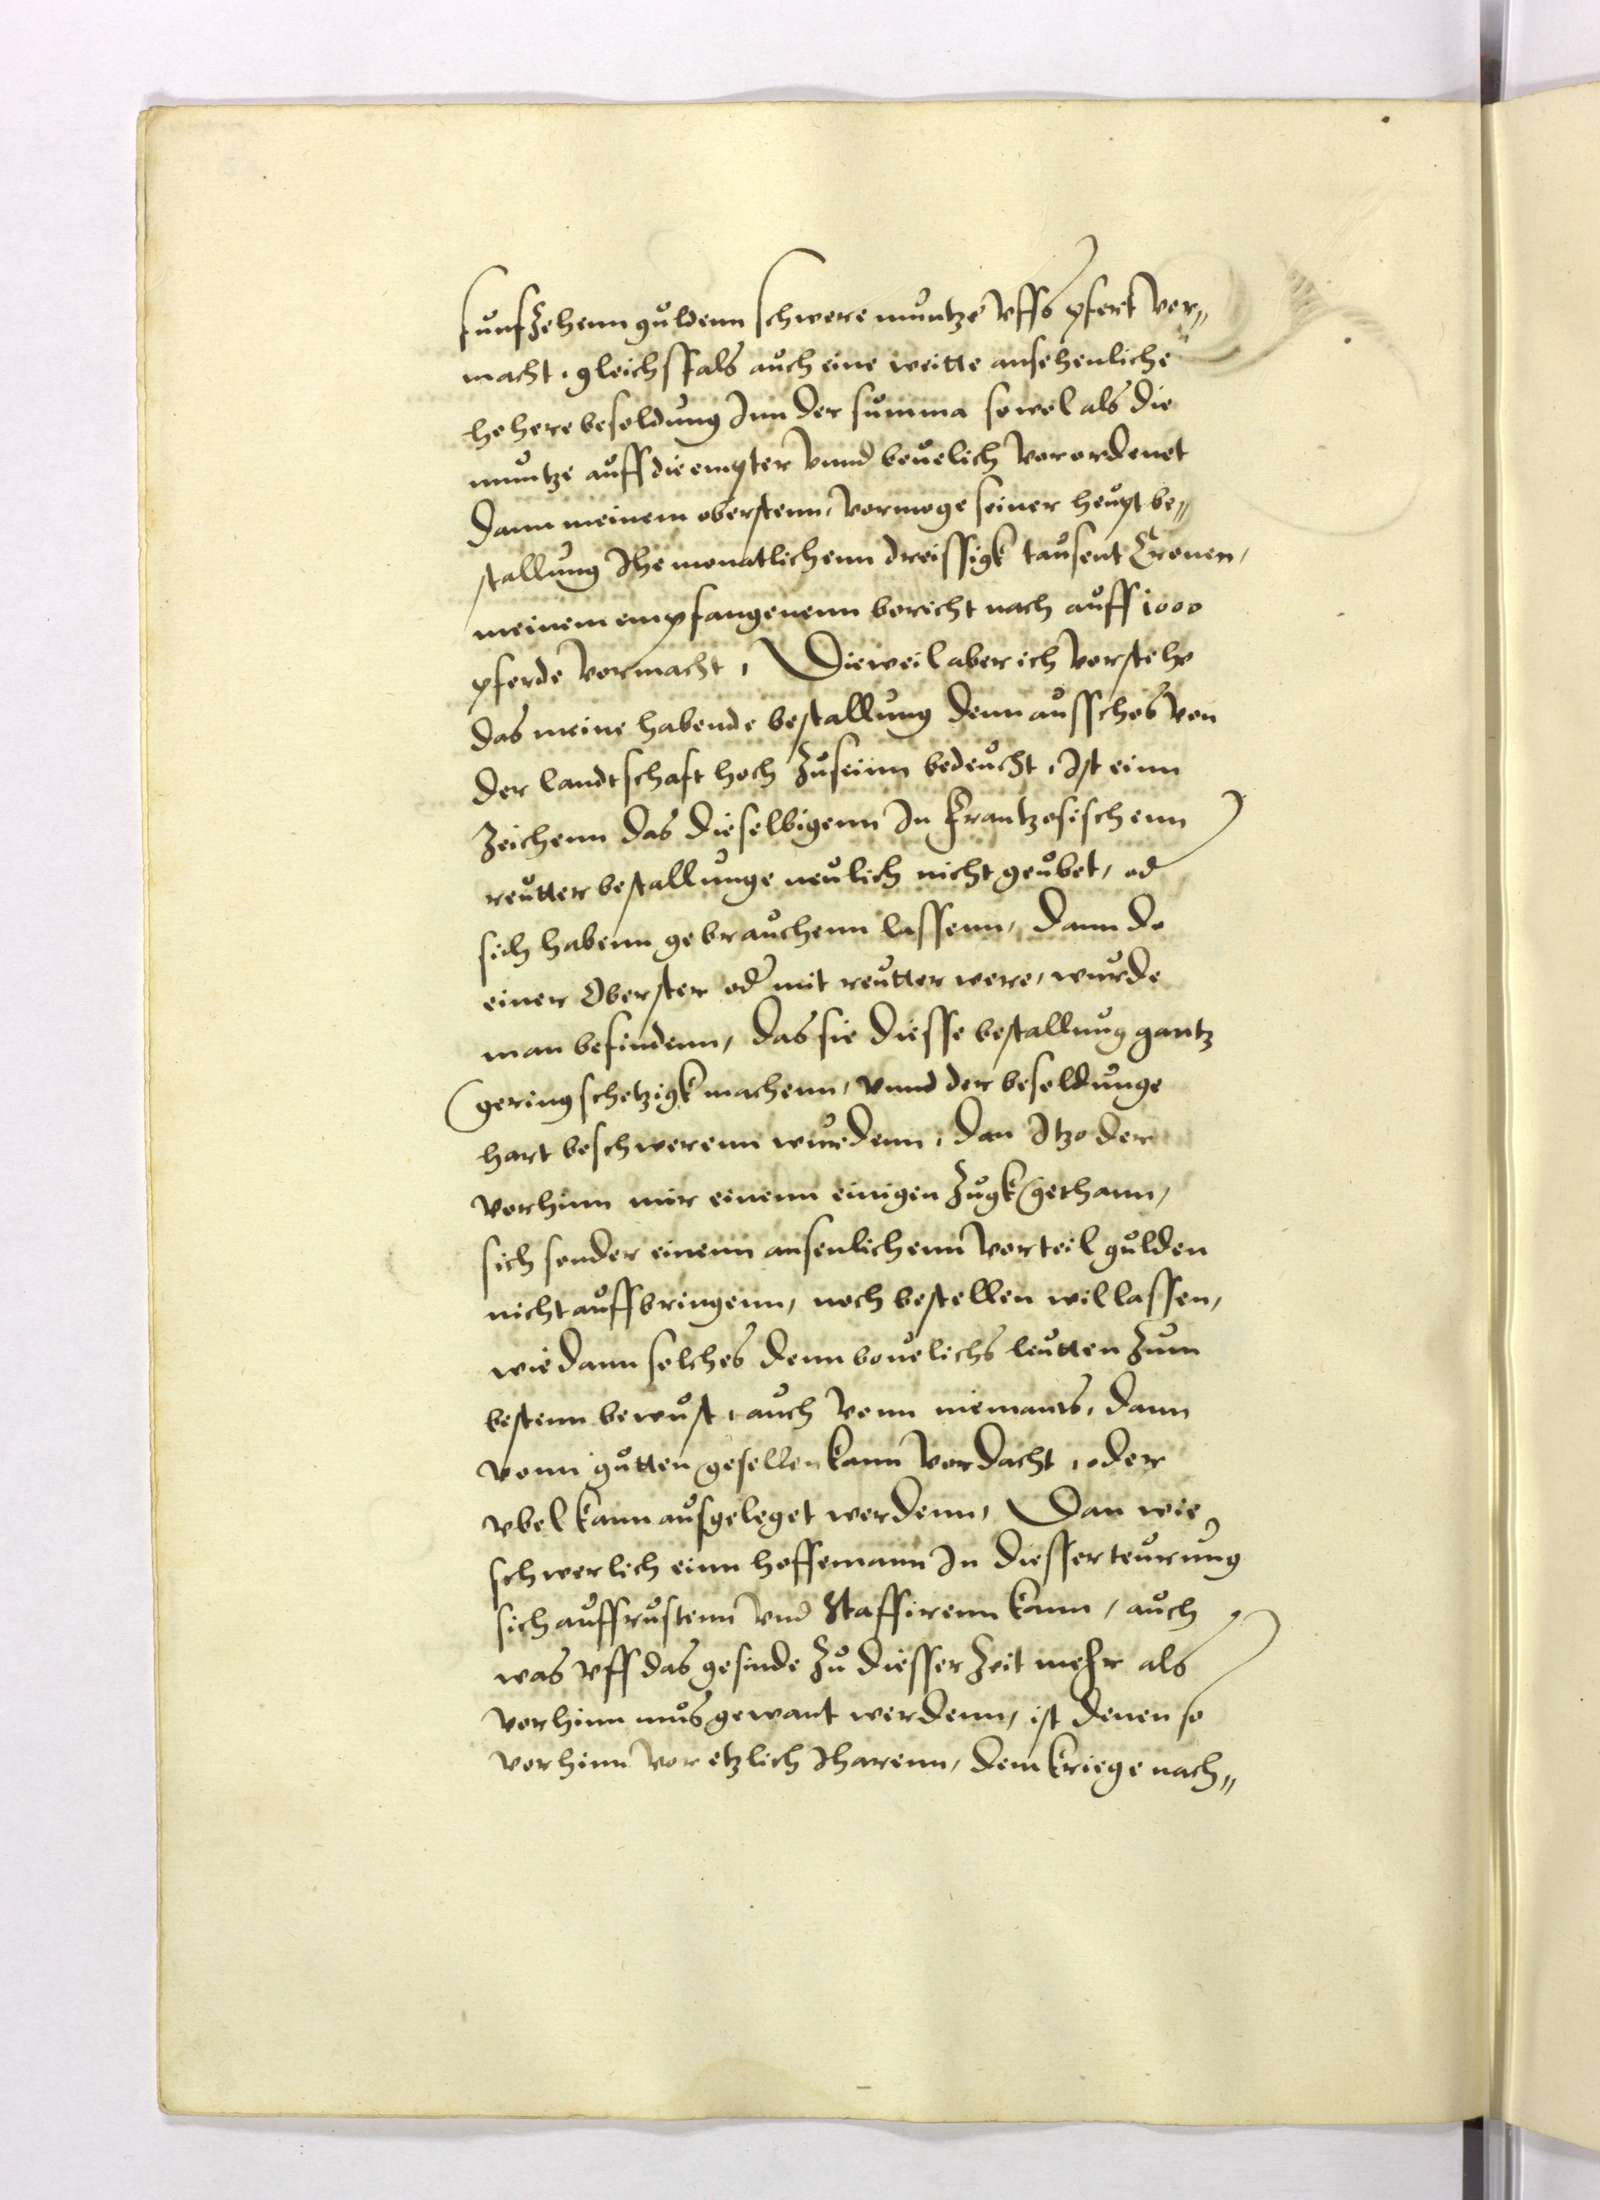 funfzehenn guldenn schwere muntze vffs pfert ver„
macht, gleichsfals auch eine weitte ansehenliche
hohere besoldung Inn der summa sowol als die
muntze auff die empter vnnd beuelich verordenet
dann meinem oberstenn, vormoge seiner heupt be„
stallung Ihe monatlichenn dreissigk tausent Cronen,
meinem empfangenenn bericht nach auff 1000
pferde vormacht, Dieweil aber ich vorstehe
das meine habende bestallung denn ausschos von
der landtschaft hoch zuseinn bedeucht, Ist einn
zeichenn das dieselbigenn In frantzosischenn
reutter bestallunge neulich nicht geubet, od
sich habenn gebrauchenn lassenn, dann do
einer Oberster oder mit reutter were, wurde
man befindenn, das sie diesse bestallung gantz
geringschetzigk machenn, vnnd der besoldunge
hart beschwerenn wurdenn, dan Itzo der
vorhinn nur einenn einigen zugk gethann,
sich sonder einenn ansenlichenn vorteil gulden
nicht auffbringenn, noch bestellen wil lassen,
wie dann solches denn beuelichs leutten zum
bestenn bewust, auch vonn niemants, dann
vonn gutten gesellen kann vordacht, oder
vbel kann ausgeleget werdenn, Dan wie
schwerlich einn hoffemann In diesser teurung
sich auffrustenn vnd Staffirenn kann, auch
was vff das gesinde zu diesser zeit mehr als
vorhinn mus gewant werdenn, ist denen so
vorhinn vor etzlich Iharenn, dem kriege nach„